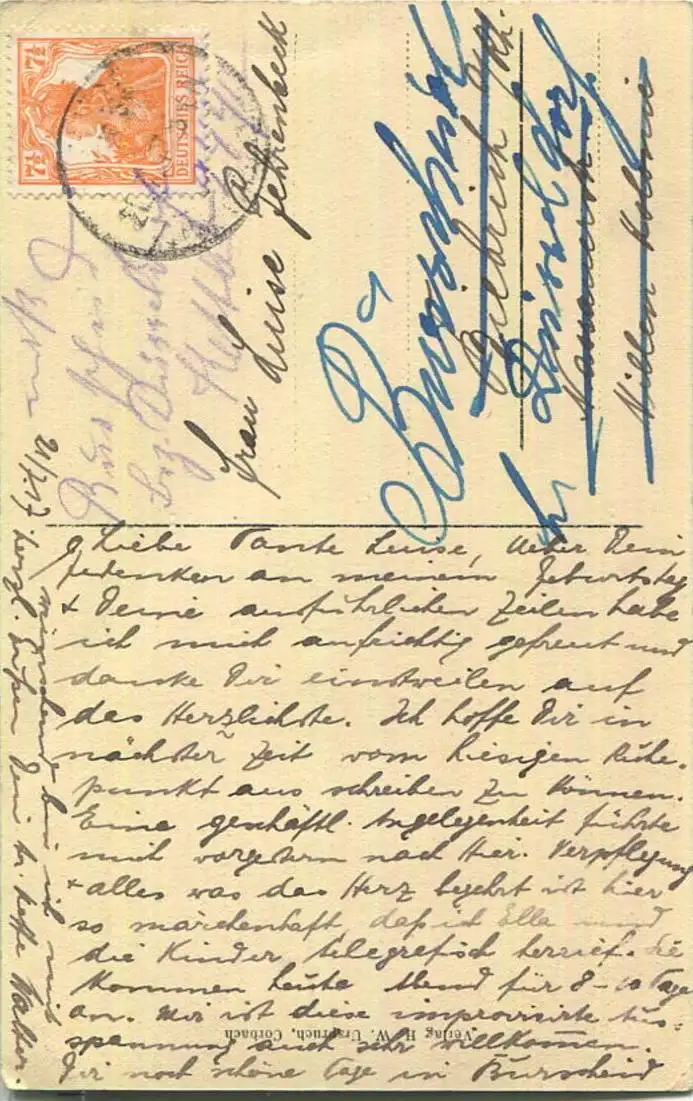 Liebe Tante Luise, Ueber Dein
Gedenken an meinem Geburtstag
+ Deine ausführlichen Zeilen habe
ich mich aufrichtig gefreut und
danke Dir einstweilen auf
das Herzlichste. Ich hoffe Dir in
nächster Zeit vom hiesigen Ruhe-
punkt aus schreiben zu können.
Eine geschäftl. Angelegenheit führte
mich vorgestern nach hier. Verpflegung
+ alles was das Herz begehrt ist hier
so märchenhaft, daß ich Ella und
die Kinder telegrafisch herrief. Sie
kommen heute Abend für 8-10 Tage
an. Mir ist diese improvisirte Aus-
spannung auch sehr willkommen.
Dir noch schöne Tage in Burscheid
wünschend bin ich mit
herzl. Grüßen Dein tr. Neffe Walther.
21/7.17.
Frau Luise Fehrenbeck
Burscheid
Biebrich a/Rh.
Düsseldorf
Kolonie
DEUTSCHES REICH
7½ 7½
Verlag H. W. Urspruch, Corbach